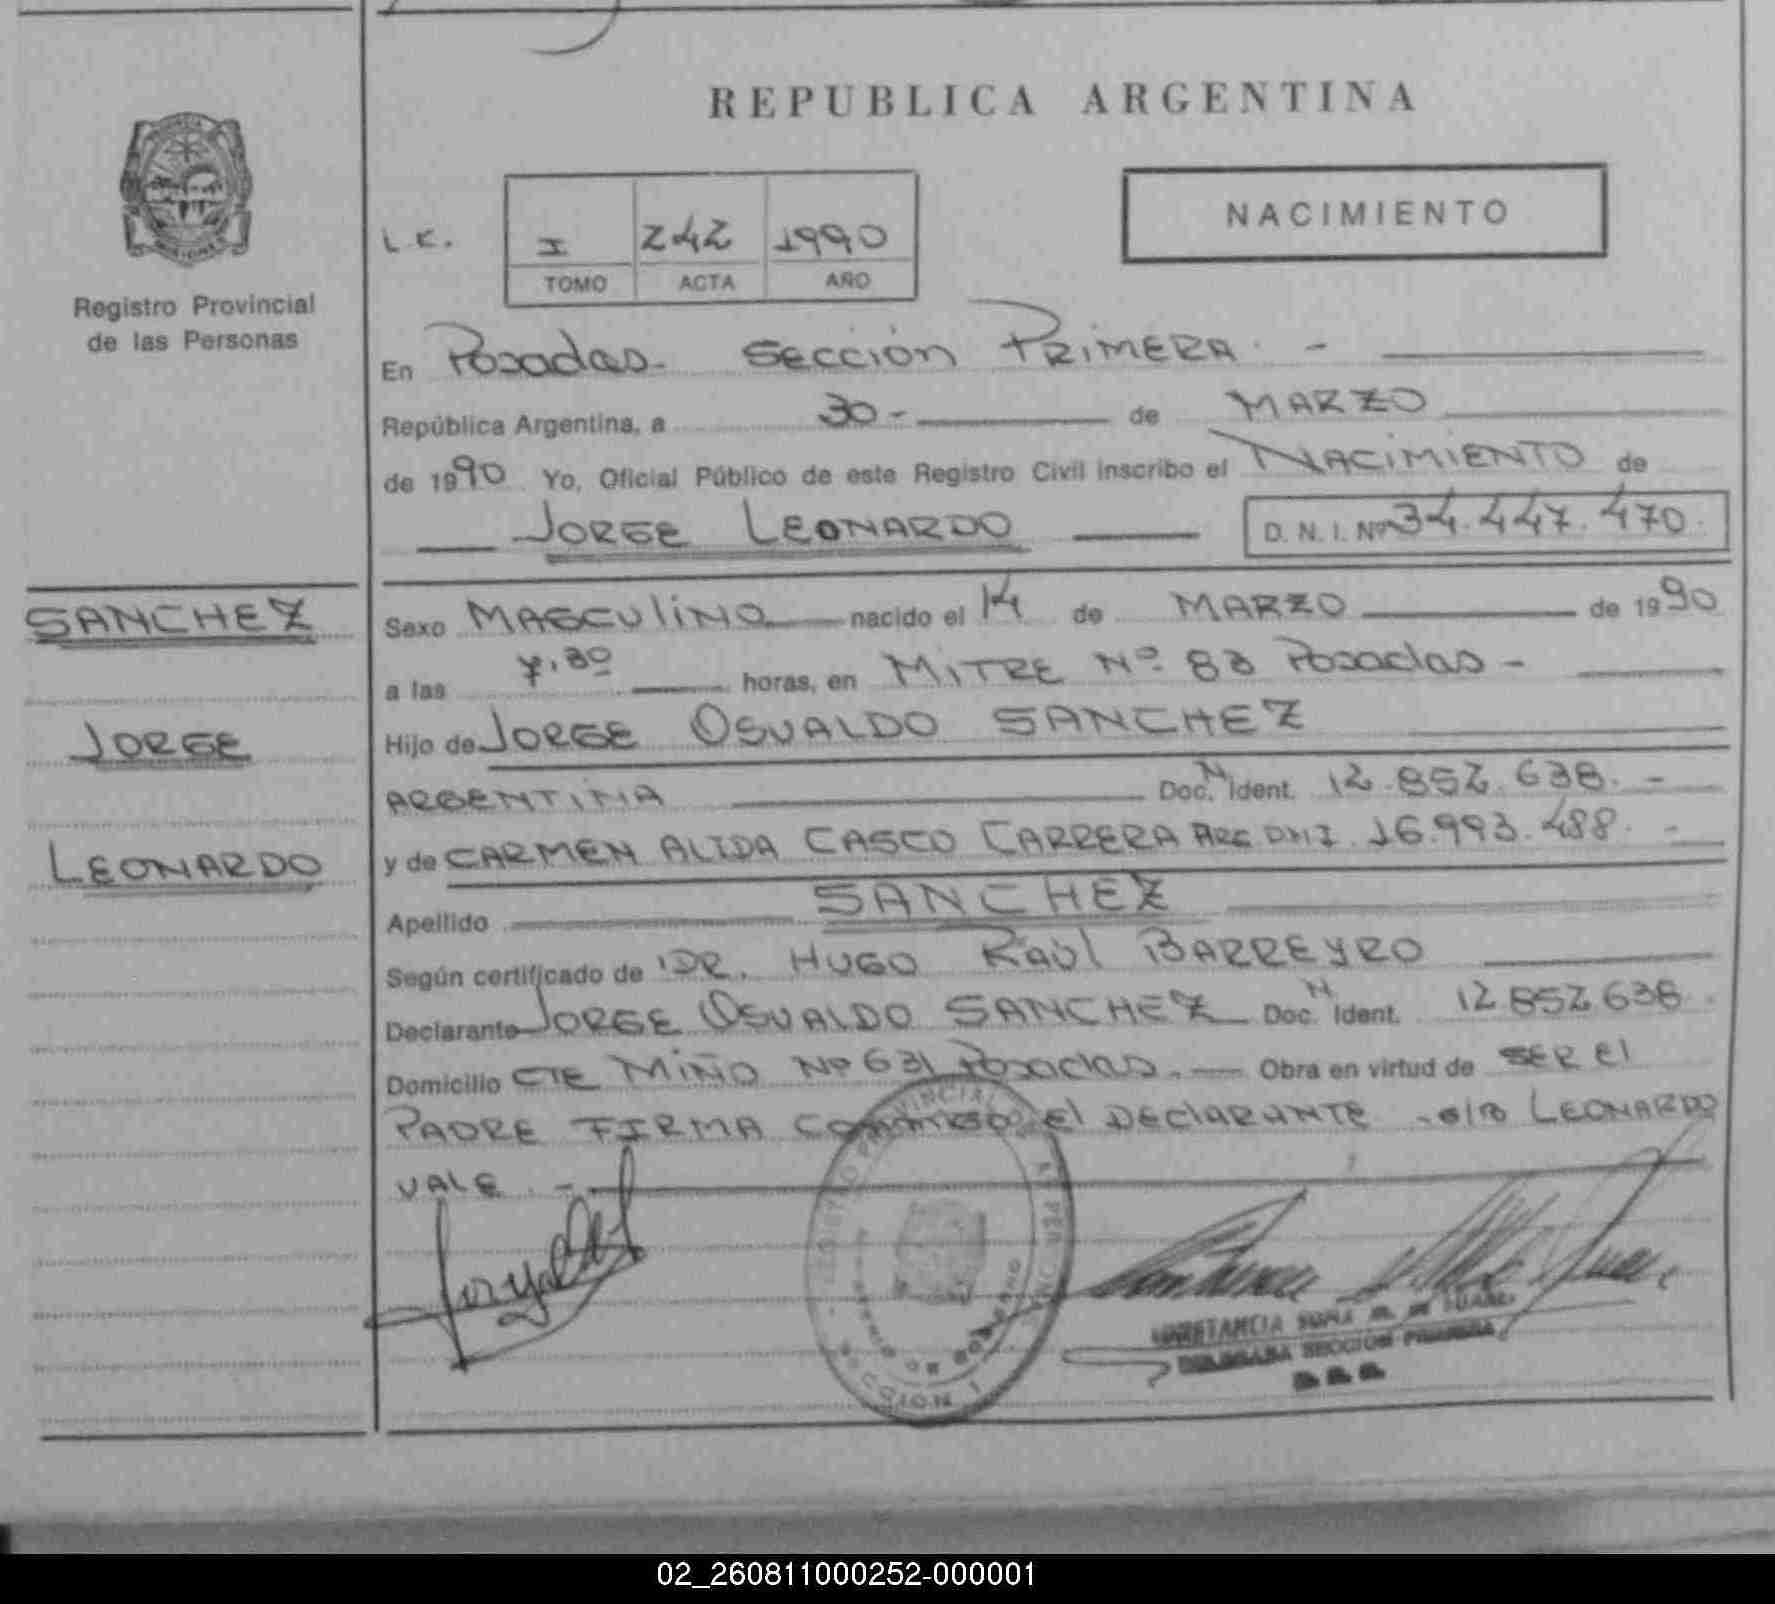 REPUBLICA ARGENTINA
PROVINCIA
MISIONES
Registro Provincial
de las Personas
L.E.
I 242 1990
TOMO ACTA AÑO
NACIMIENTO
En Posadas - Sección PRIMERA. -
República Argentina, a 30 - de MARZO
de 1990 Yo, Oficial Público de este Registro Civil inscribo el NACIMIENTO de
JORGE LEONARDO D. N. I. Nº 34.447.470.
SANCHEZ
JORGE
LEONARDO
Sexo MASCULINO nacido el 14 de MARZO de 1990
a las 7.30 horas, en MITRE Nº 83 Posadas -
Hijo de JORGE OSVALDO SANCHEZ
ARGENTINA Doc. N Ident. 12.852.638. -
y de CARMEN ALIDA CASCO CARRERA ARG DNI. 16.993.488. -
Apellido SANCHEZ
Según certificado de DR. HUGO RAUL BARREYRO
Declarante JORGE OSVALDO SANCHEZ Doc. N Ident. 12 852 638.
Domicilio CTE MIÑO Nº 631 Posadas. - Obra en virtud de SER El
PADRE FIRMA CONMIGO El DEClARANTE -s/r LEONARDO
VALE. -
SECCION 1
DELEGADA SECCION PRIMERA
02_260811000252-000001